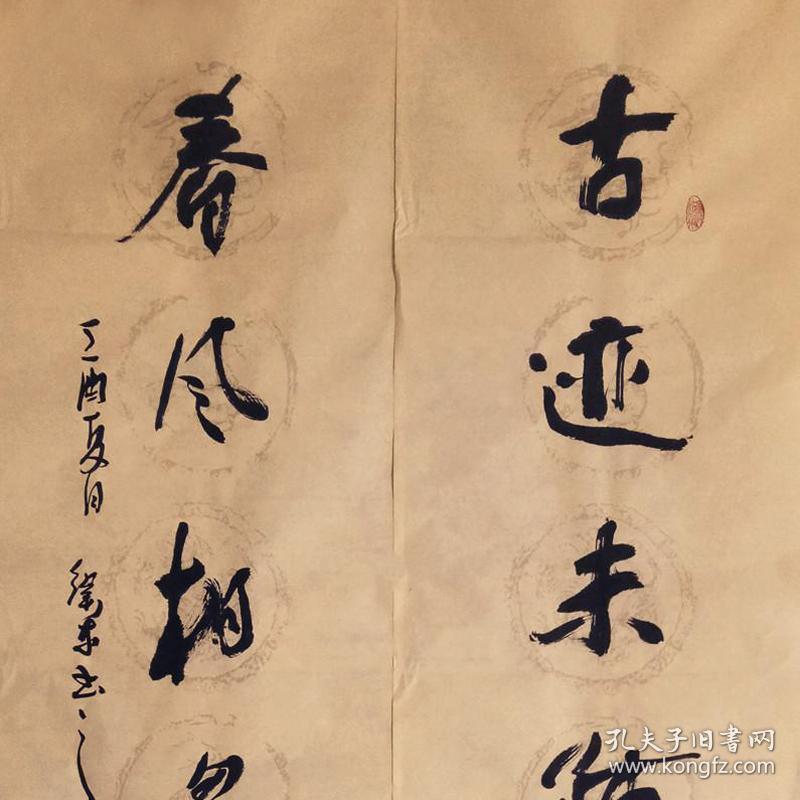 古迹未
春风相
丁酉夏日
东书之
孔夫子旧书网
www.kongfz.com